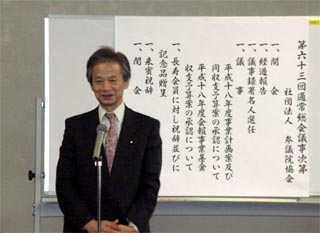 第六十三回通常総会議事次第
社団法人　参議院協会
一、開　会
一、経過報告
一、議事録署名人選任
一、議　事
平成十八年度事業計画案及び
同収支予算案の承認について
平成十八年度会報事業基金
収支予算案の承認について
一、長寿会員に対し祝辞並びに
記念品贈呈
一、来賓祝辞
一、閉　会